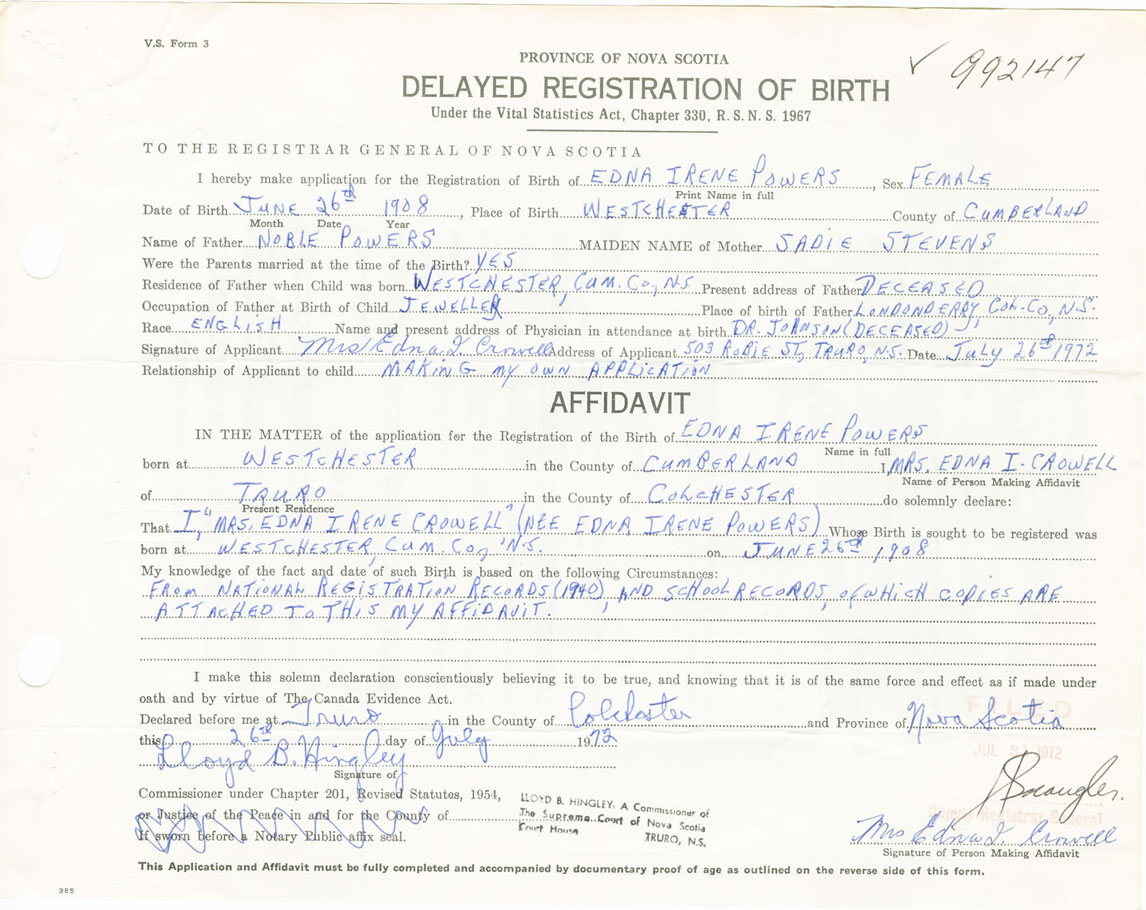 V.S. Form 3
PROVINCE OF NOVA SCOTIA
✓ 992147
DELAYED REGISTRATION OF BIRTH
Under the Vital Statistics Act, Chapter 330, R.S.N.S. 1967
TO THE REGISTRAR GENERAL OF NOVA SCOTIA
I hereby make application for the Registration of Birth of EDNA IRENE POWERS, Sex FEMALE
Print Name in full
Date of Birth JUNE 26th 1908, Place of Birth WESTCHESTER County of CUMBERLAND
Month Date Year
Name of Father NOBLE POWERS MAIDEN NAME of Mother SADIE STEVENS
Were the Parents married at the time of the Birth? YES
Residence of Father when Child was born WESTCHESTER, CUM. CO., NS Present address of Father DECEASED
Occupation of Father at Birth of Child JEWELLER Place of birth of Father LONDONDERRY, COL-CO, N-S-
Race ENGLISH Name and present address of Physician in attendance at birth DR. JOHNSON (DECEASED)
Signature of Applicant Mrs Edna I Crowell Address of Applicant 503 ROBIE ST, TRURO, N.S. Date July 26th 1972
Relationship of Applicant to child MAKING MY OWN APPLICATION
AFFIDAVIT
IN THE MATTER of the application for the Registration of the Birth of EDNA IRENE POWERS
Name in full
born at WESTCHESTER in the County of CUMBERLAND I MRS. EDNA I. CROWELL
Name of Person Making Affidavit
of TRURO in the County of COLCHESTER do solemnly declare:
Present Residence
That I, "MRS. EDNA IRENE CROWELL" (NEE EDNA IRENE POWERS) Whose Birth is sought to be registered was
born at WESTCHESTER, CUM. CO., N.S. on JUNE 26th 1908
My knowledge of the fact and date of such Birth is based on the following Circumstances:
FROM NATIONAL REGISTRATION RECORDS (1940), AND SCHOOL RECORDS, OF WHICH COPIES ARE
ATTACHED TO THIS MY AFFIDAVIT.
I make this solemn declaration conscientiously believing it to be true, and knowing that it is of the same force and effect as if made under
oath and by virtue of The Canada Evidence Act.
Declared before me at Truro in the County of Colchester and Province of Nova Scotia
FILED
this 26th day of July 1972
JUL 1972
Lloyd B. Hingley
Signature of
Commissioner under Chapter 201, Revised Statutes, 1954,
or Justice of the Peace in and for the County of
If sworn before a Notary Public affix seal.
LLOYD B. HINGLEY, A Commissioner of
The Supreme Court of Nova Scotia
Court House TRURO, N.S.
Deputy Registrar General
Mrs Edna I. Crowell
Signature of Person Making Affidavit
This Application and Affidavit must be fully completed and accompanied by documentary proof of age as outlined on the reverse side of this form.
365